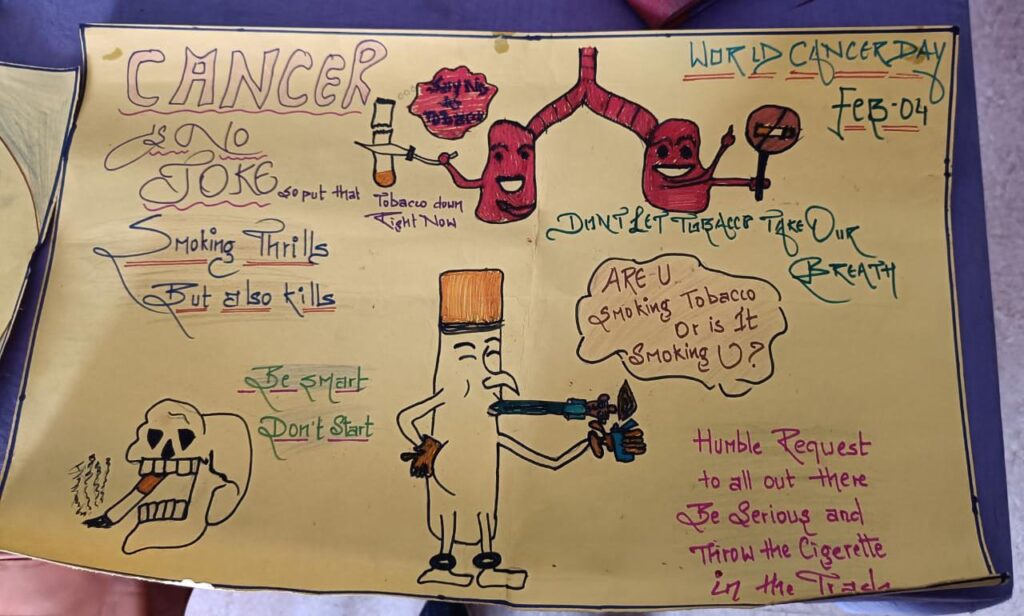 CANCER
is No
JOKE so put that Tobacco down
Right Now
Say No
to
Tobacco
WORLD CANCER DAY
Feb-04
Smoking Thrills
But also kills
DON'T LET TOBACCO TAKE OUR
BREATH
ARE U
Smoking Tobacco
Or is It
Smoking U?
Be smart
Don't Start
Humble Request
to all out there
Be Serious and
Throw the Cigerette
in the Trash